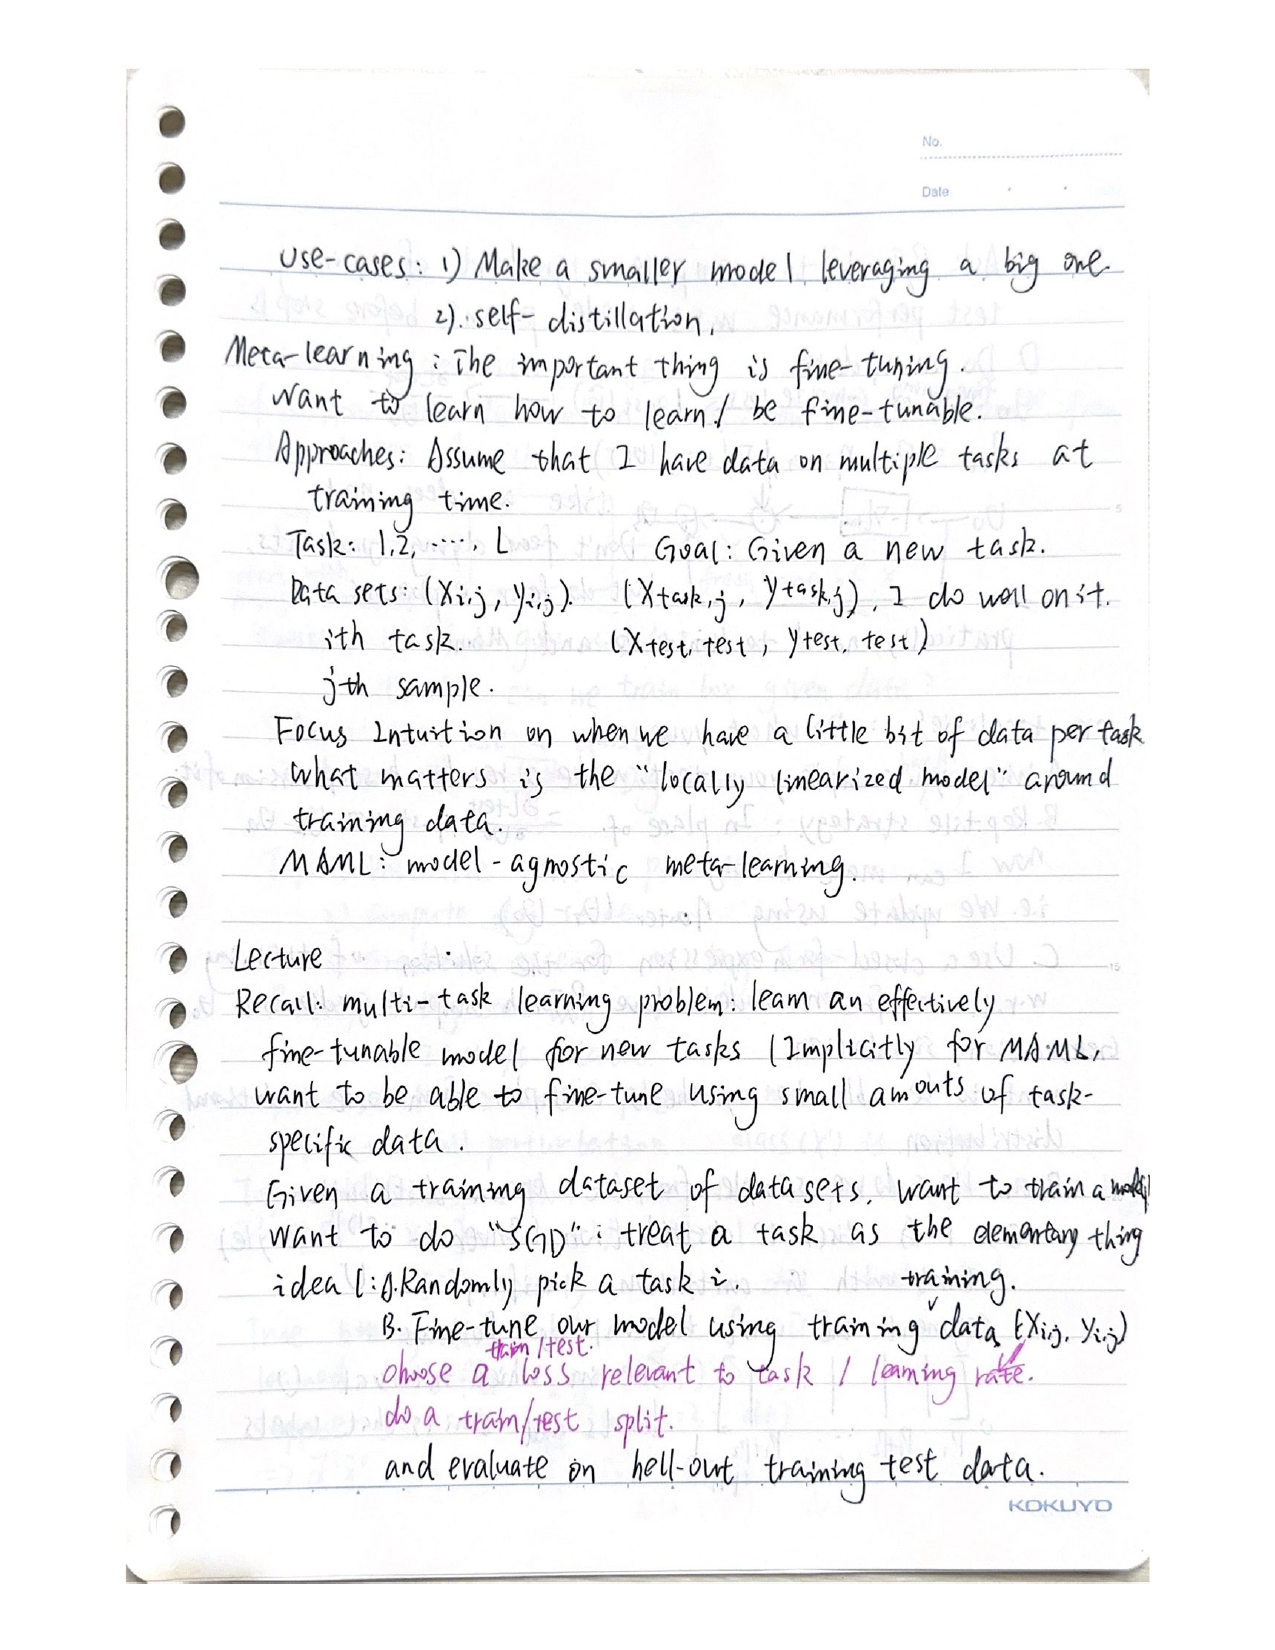 No.
Date
Use-cases: 1) Make a smaller model leveraging a big one.
2). self-distillation.
Meta-learning: The important thing is fine-tuning.
Want to learn how to learn / be fine-tunable.
Approaches: Assume that I have data on multiple tasks at
training time.
Task: 1,2, ...., L Goal: Given a new task.
Data sets: (Xi,j, yi,j). (Xtask,j, ytask,j), I do well on it.
ith task. (Xtest,test, ytest,test)
jth sample.
Focus Intuition on when we have a little bit of data per task
What matters is the "locally linearized model" around
training data.
MAML: model-agnostic meta-learning.
Lecture
Recall: multi-task learning problem: learn an effectively
fine-tunable model for new tasks (Implicitly for MAML,
want to be able to fine-tune using small amouts of task-
specific data.
Given a training dataset of datasets. Want to train a model
Want to do "SGD": treat a task as the elementary thing
idea 1: A. Randomly pick a task i. training.
B. Fine-tune our model using training data (Xi,j, Yi,j)
train/test.
choose a loss relevant to task / learning rate.
do a train/test split.
and evaluate on hell-out training test data.
KOKUYO